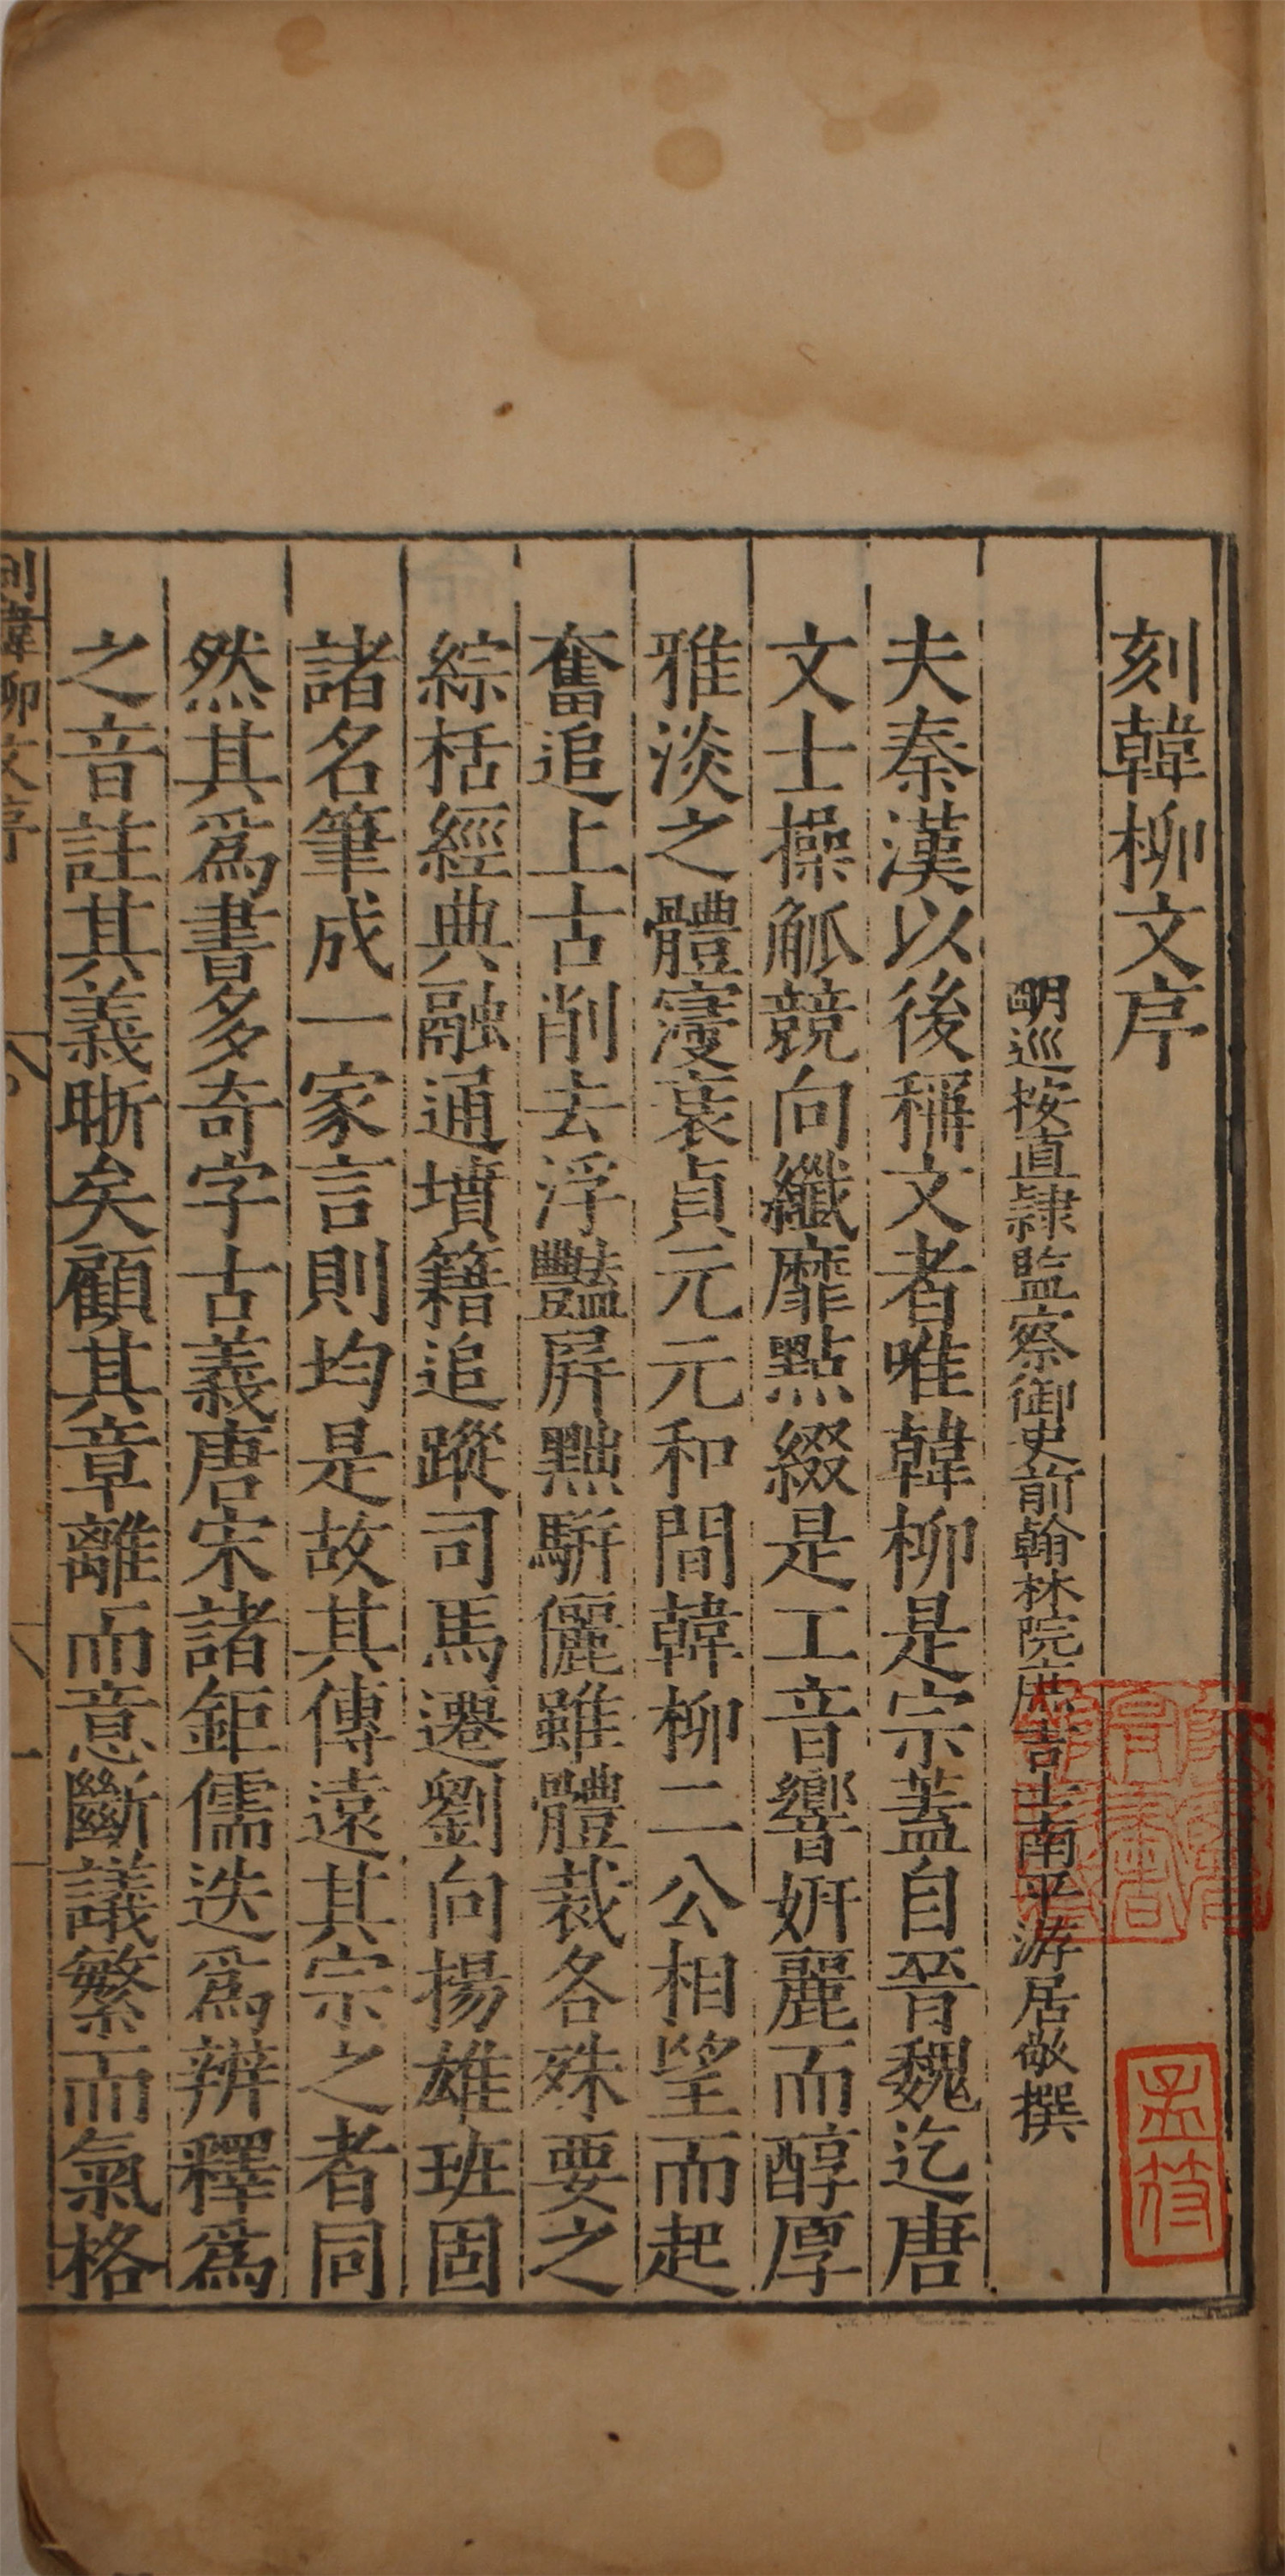 刻韓柳文序
明巡按直隸監察御史前翰林院庶吉士南平游居敬撰
夫秦漢以後稱文者唯韓柳是宗蓋自晉魏迄唐
文士操觚競向纖靡點綴是工音響姸麗而醇厚
雅淡之體寖衰貞元元和間韓柳二公相望而起
奮追上古削去浮豔屛黜騈儷雖體裁各殊要之
綜栝經典融通墳籍追蹤司馬遷劉向揚雄班固
諸名筆成一家言則均是故其傳遠其宗之者同
然其爲書多奇字古義唐宋諸鉅儒迭爲辨釋爲
之音註其義晣矣顧其章離而意斷議繁而氣格
韓柳文序
一
孟符